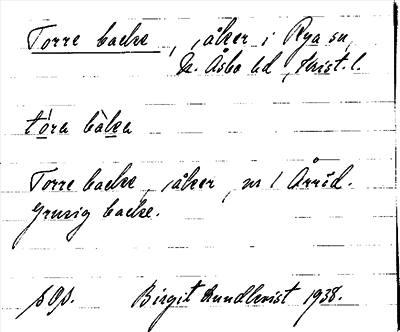 Torre backe, åker i Rya sn,
N. Åsbo hd, Krist. l.
tòra bàka
Torre backe, åker, nr 1 Årröd.
Grusig backe.
s 9.
Birgit Rundkvist 1938.